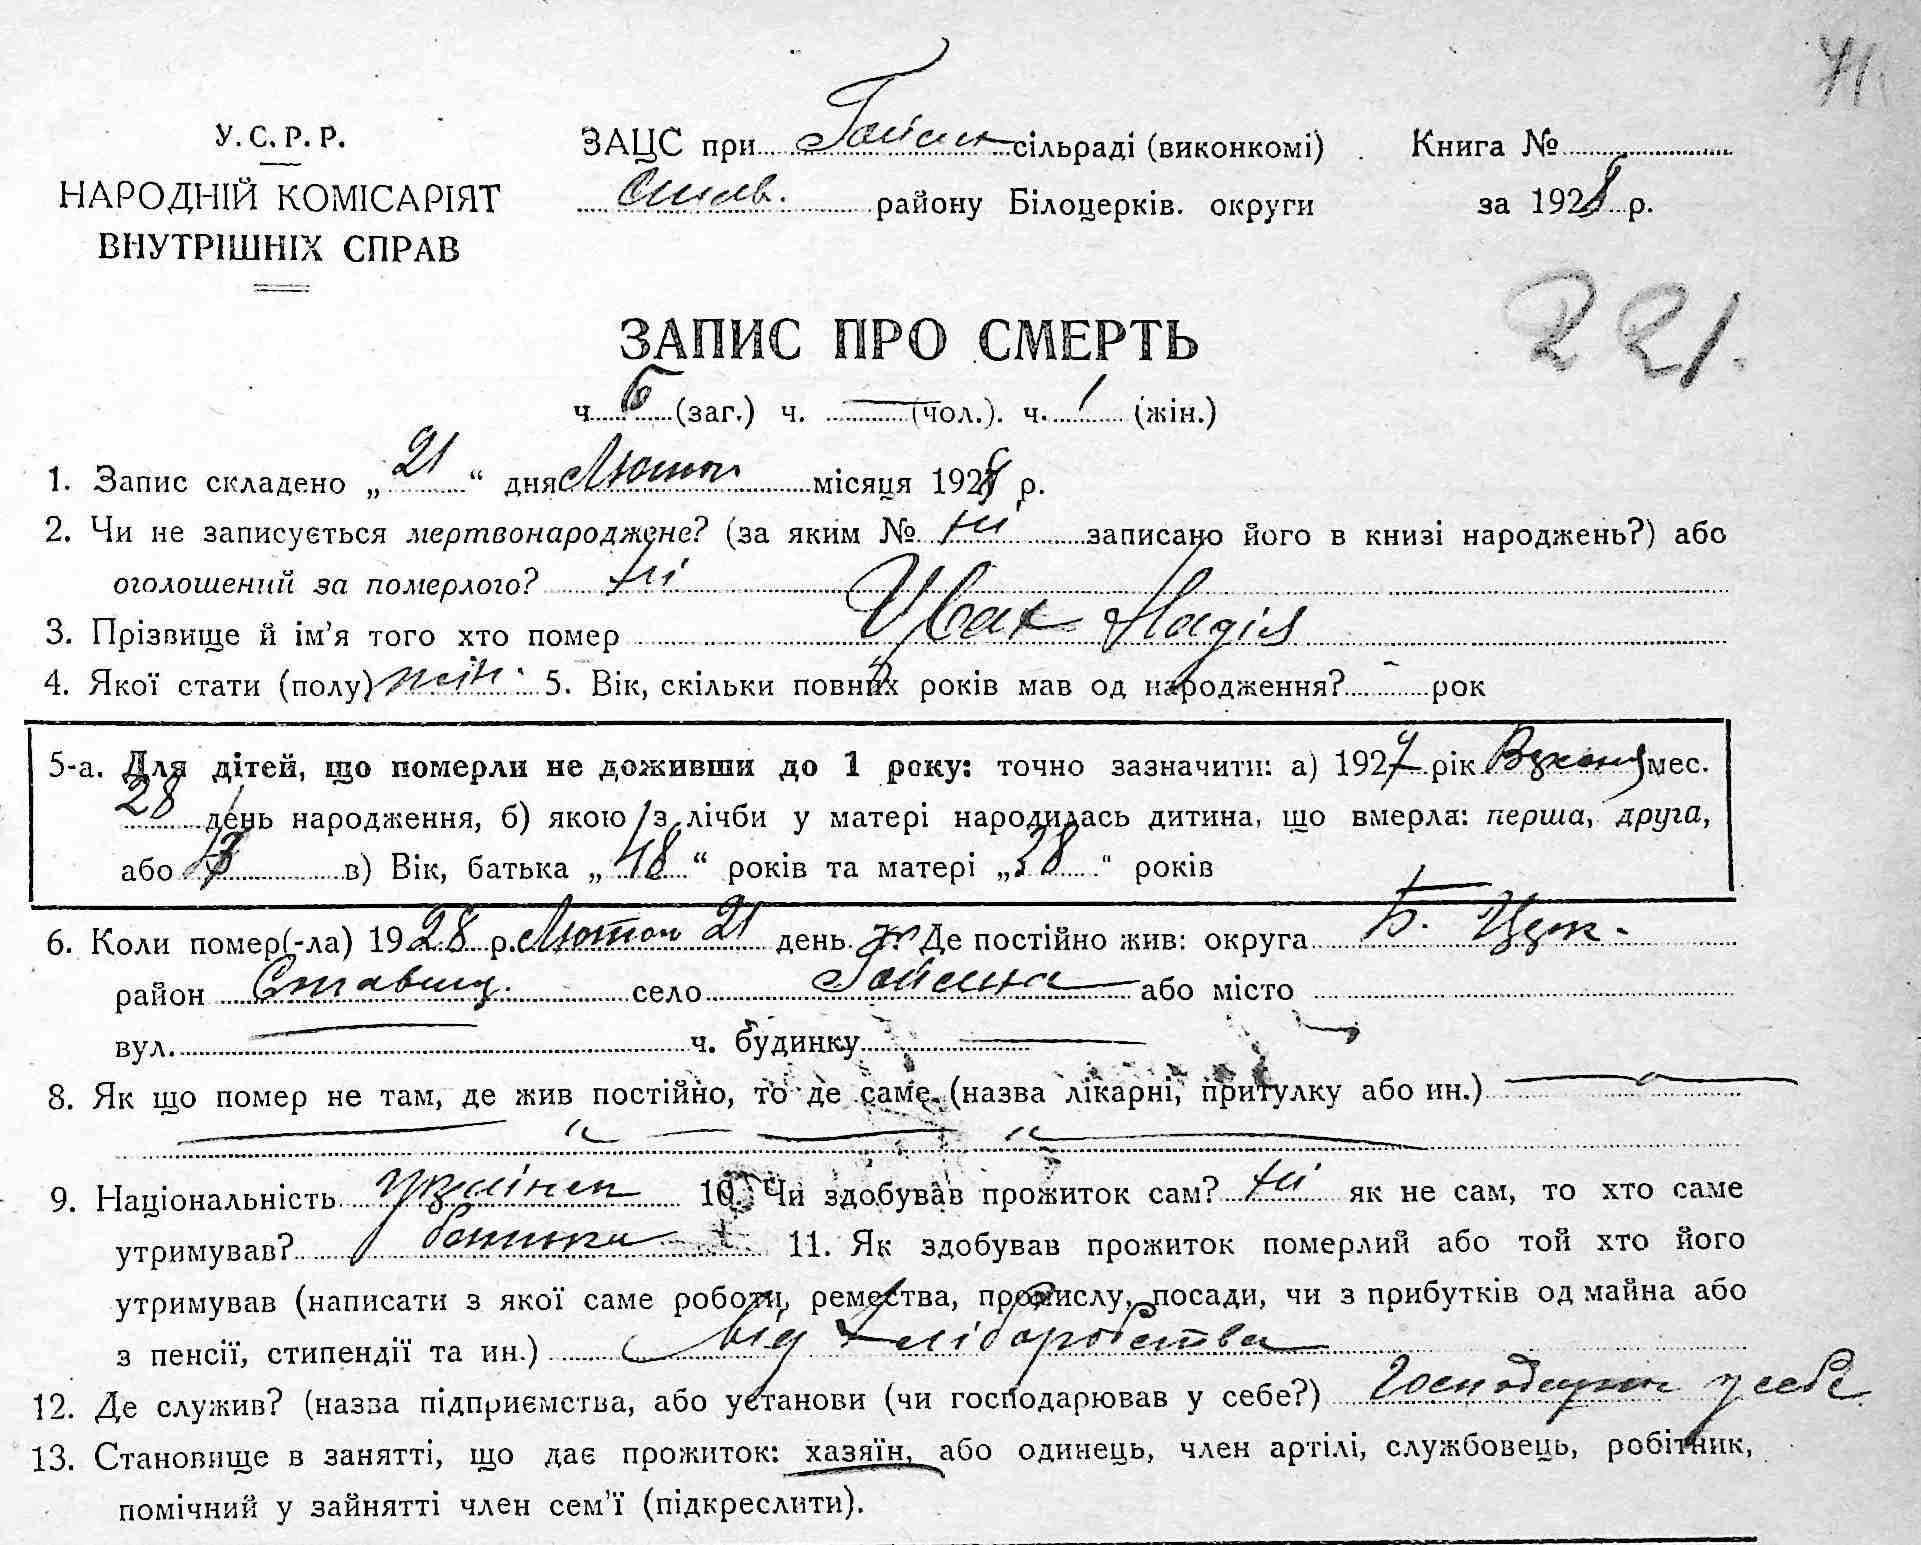 71
У.С.Р.Р.
НАРОДНІЙ КОМІСАРІЯТ
ВНУТРІШНІХ СПРАВ
ЗАЦС при сільраді (виконкомі)
району Білоцерків. округи
Книга №
за 1928 р.
221.
ЗАПИС ПРО СМЕРТЬ
ч. 6 (заг.) ч. — (чол.). ч. 1 (жін.)
1. Запис складено „ 21 “ дня Лютого місяця 1928 р.
2. Чи не записується мертвонароджене? (за яким № ні записано його в книзі народжень?) або
оголошений за померлого? ні
3. Прізвище й ім'я того хто помер Надія
4. Якої стати (полу) жін. 5. Вік, скільки повних років мав од народження? - рок
5-а. Для дітей, що померли не доживши до 1 року: точно зазначити: а) 1927 рік мес.
28 день народження, б) якою з лічби у матері народилась дитина, що вмерла: перша, друга,
або в) Вік, батька „ 48 “ років та матері „ 38 “ років
6. Коли помер(-ла) 1928 р. Лютого 21 день Де постійно жив: округа Б. Церк.
район Ставищ. село Гейсиха або місто
вул. — ч. будинку —
8. Як що помер не там, де жив постійно, то де саме (назва лікарні, притулку або ин.) —
— „ — „ —
9. Національність українка 10. Чи здобував прожиток сам? ні як не сам, то хто саме
утримував? батьки 11. Як здобував прожиток померлий або той хто його
утримував (написати з якої саме роботи, ремества, промислу, посади, чи з прибутків од майна або
з пенсії, стипендії та ин.) від хліборобства
12. Де служив? (назва підприємства, або установи (чи господарював у себе?) у себе
13. Становище в занятті, що дає прожиток: хазяїн, або одинець, член артілі, службовець, робітник,
помічний у зайнятті член сем'ї (підкреслити).